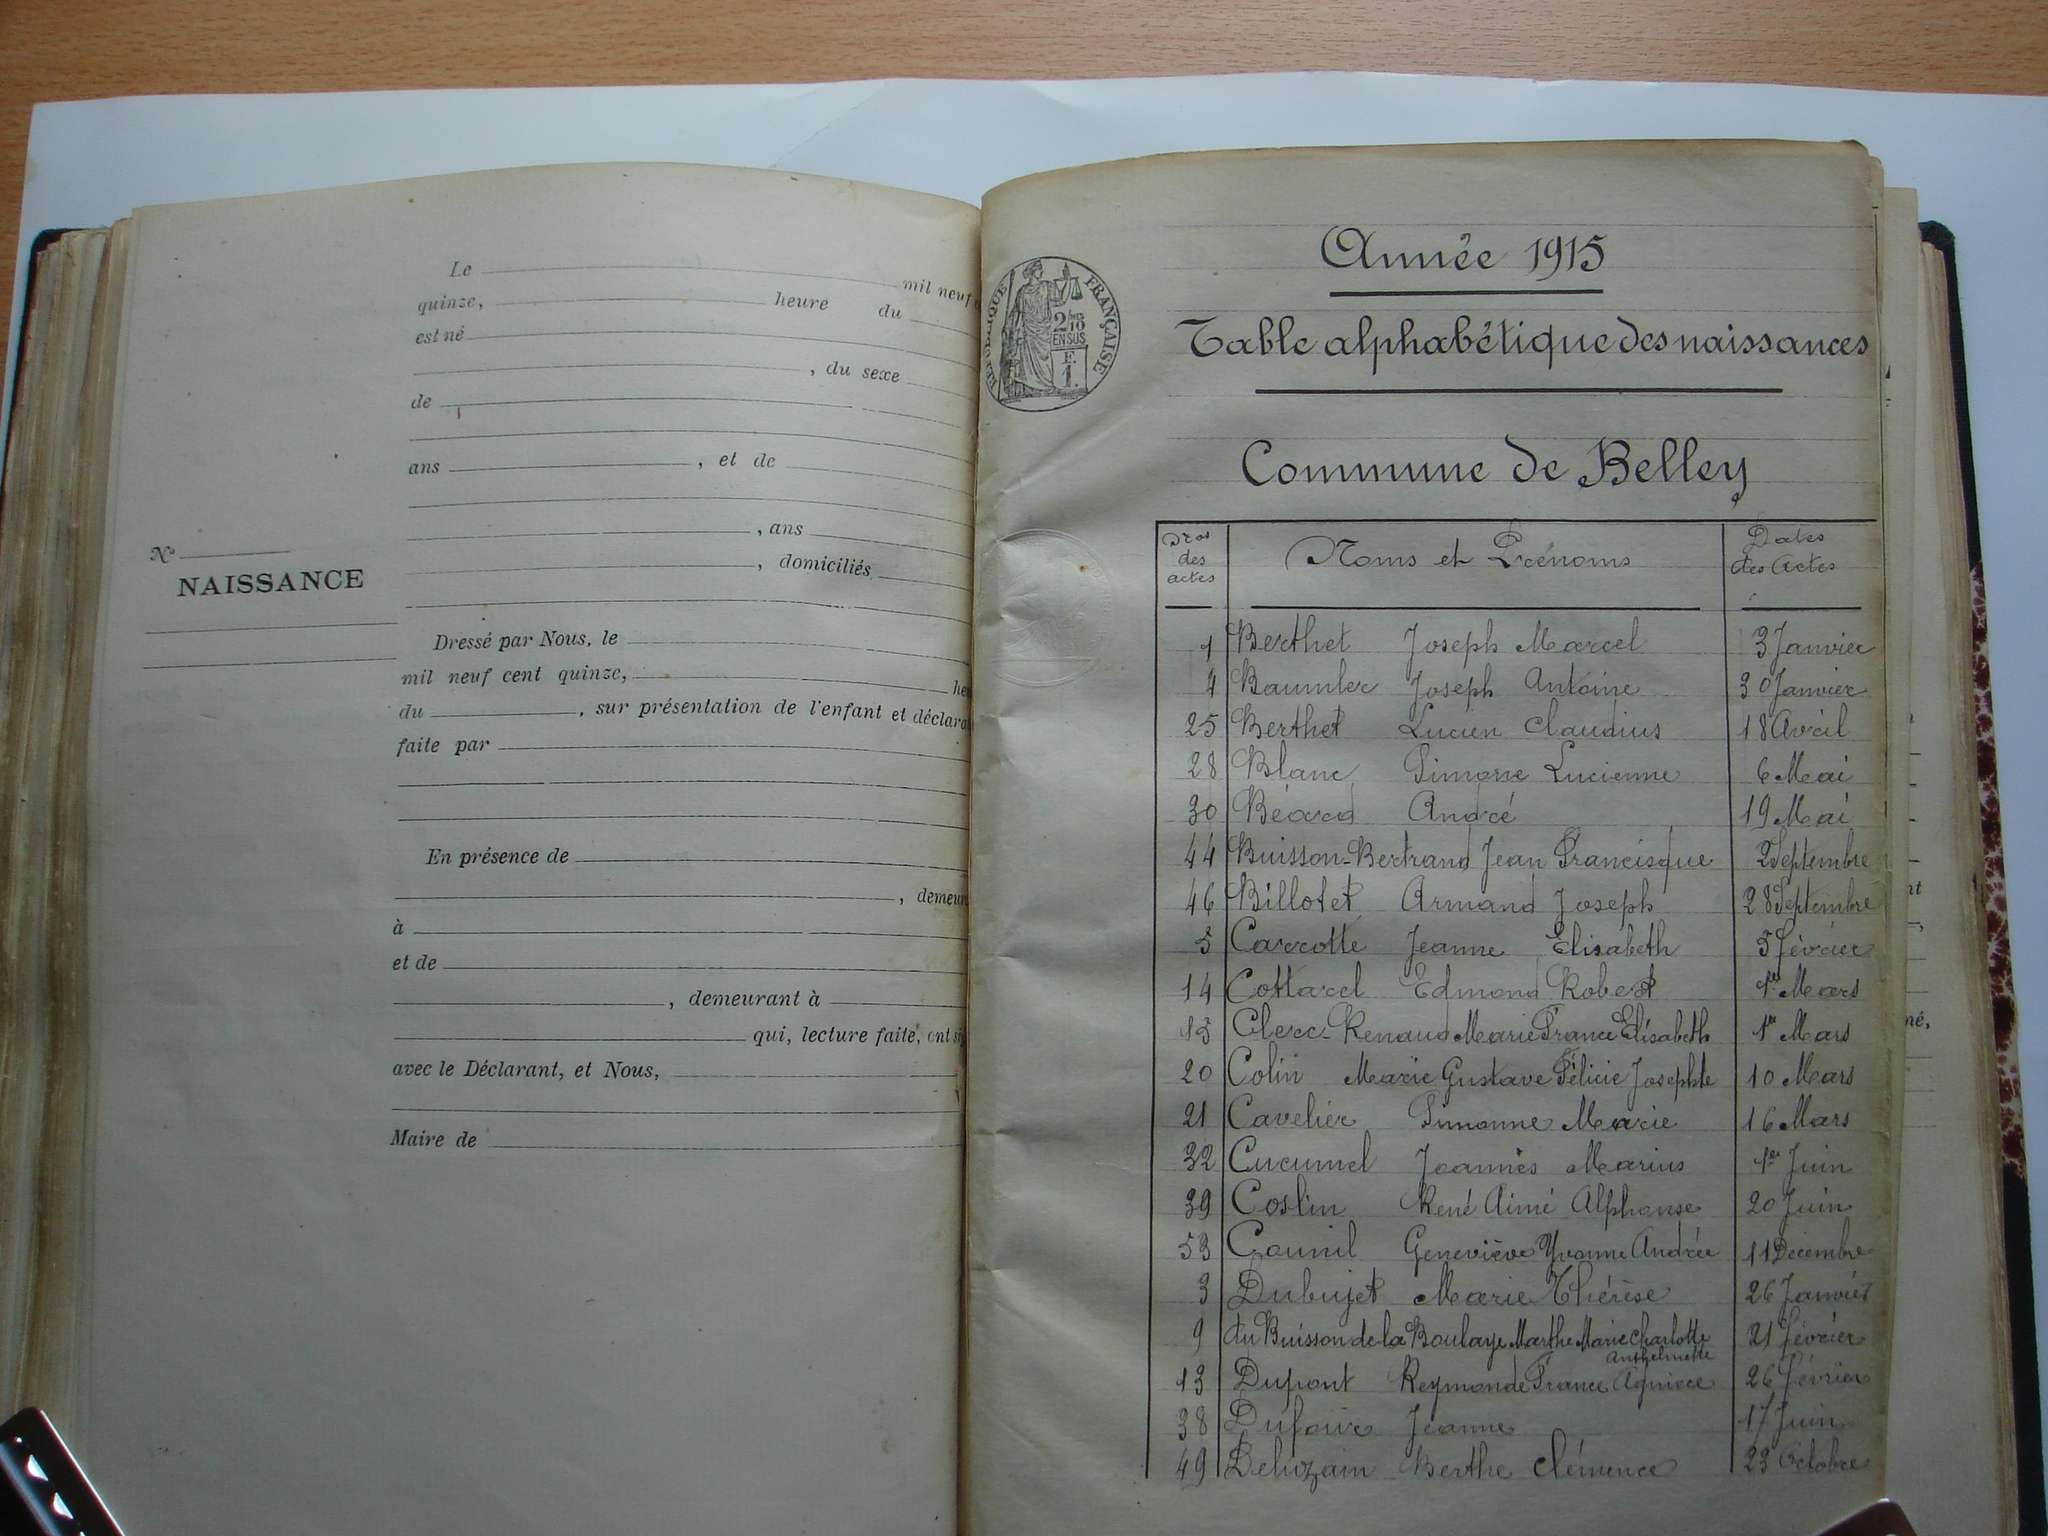 Le mil neuf
quinze, heure du
est né
, du sexe
de
ans , et de
, ans
, domiciliés
No
NAISSANCE
Dressé par Nous, le
mil neuf cent quinze,
du , sur présentation de l'enfant et déclara
faite par
En présence de
, demeur
à
et de
, demeurant à
qui, lecture faite, ont si
avec le Déclarant, et Nous,
Maire de
RÉPUBLIQUE FRANÇAISE
2/10
EN SUS
F.
1.
Année 1915
Table alphabétique des naissances
Commune de Belley
Nros des actes Noms et Prénoms Dates des Actes
1 Berthet Joseph Marcel 3 Janvier
4 Baumler Joseph Antoine 30 Janvier
25 Berthet Lucien Claudius 18 Avril
28 Blanc Simone Lucienne 6 Mai
30 Béard André 19 Mai
44 Buisson-Bertrand Jean Francisque 2 Septembre
46 Billotet Armand Joseph 28 Septembre
5 Carrotte Jeanne Elisabeth 5 Février
14 Cottarel Edmond Robert 1er Mars
15 Clerc-Renaud Marie France Elisabeth 1er Mars
20 Colin Marie Gustave Félicie Josephte 10 Mars
21 Cavelier Simonne Marie 16 Mars
32 Cucumel Joannès Marius 1er Juin
39 Coslin René Aimé Alphonse 20 Juin
53 Counil Geneviève Yvonne Andrée 11 Décembre
3 Dubujet Marie Thérèse 26 Janvier
9 du Buisson de la Boulaye Marthe Marie Charlotte 21 Février
Anthelmette
13 Dupont Reymonde France 26 Février
38 Dufour Jeanne 17 Juin
49 Deluzain Berthe Clémence 23 Octobre